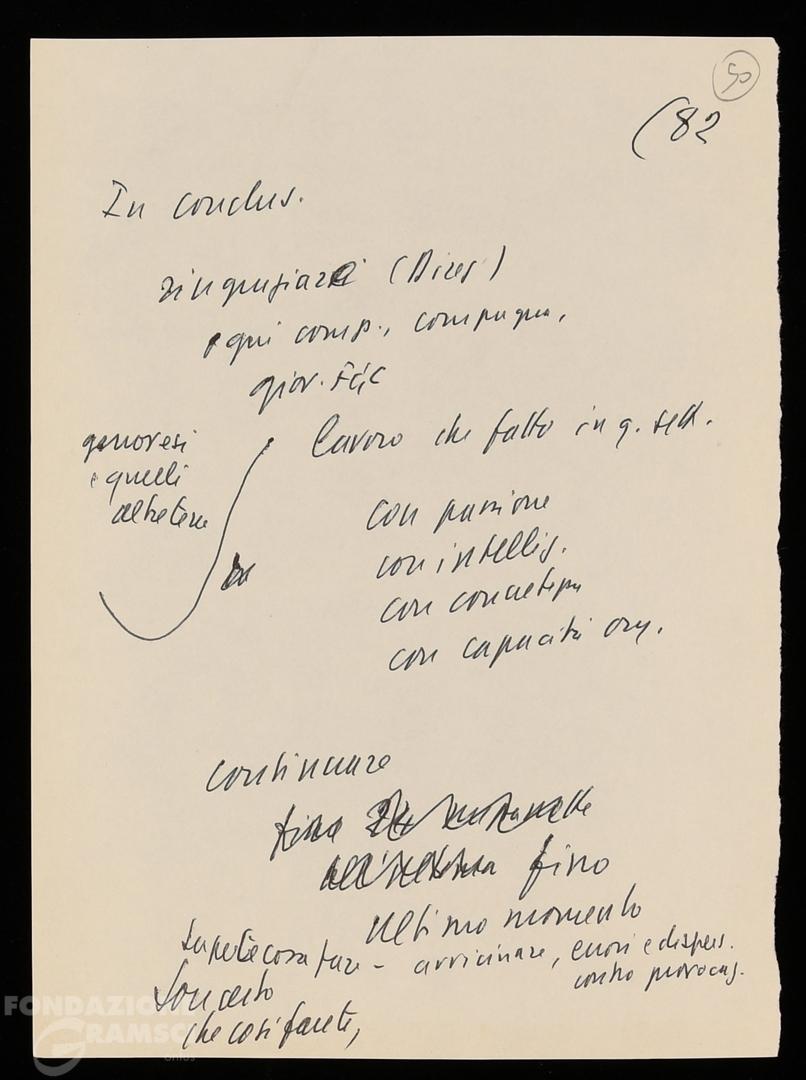 50
(82
In conclus.
ringraziare (Direz)
ogni comp., compagna,
giov. FGC
genovesi
e quelli
altre terre
lavoro che fatto in q. sett.
con passione
con intellig.
con concretezza
con capacità org.
continuare
fino
fino
ultimo momento
Sapete cosa fare - avvicinare, errori e dispers.
contro provocaz.
Son certo
che così farete,
FONDAZIONE
GRAMSCI
onlus